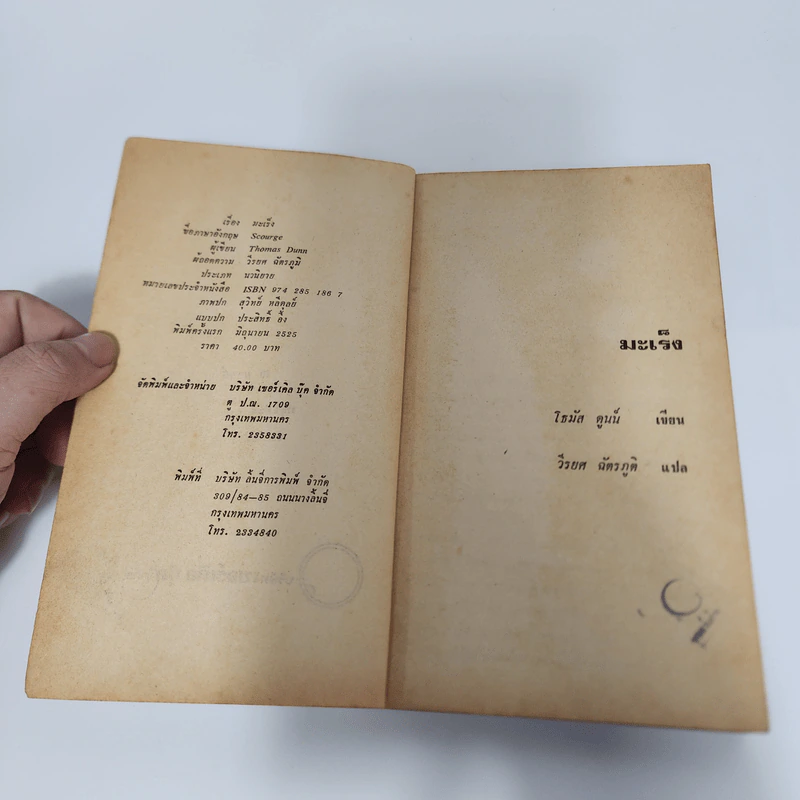 เรื่อง มะเร็ง
ชื่อภาษาอังกฤษ Scourge
ผู้เขียน Thomas Dunn
ผู้ถอดความ วีรยศ ฉัตรภูมิ
ประเภท นวนิยาย
หมายเลขประจำหนังสือ ISBN 974 285 186 7
ภาพปก สุวิทย์ หลีดุลย์
แบบปก ประสิทธิ์ อึ้ง
พิมพ์ครั้งแรก มิถุนายน 2525
ราคา 40.00 บาท
จัดพิมพ์และจำหน่าย บริษัท เซอร์เคิล บุ๊ค จำกัด
ตู้ ป.ณ. 1709
กรุงเทพมหานคร
โทร. 2358331
พิมพ์ที่ บริษัท ลิ้นจี่การพิมพ์ จำกัด
309/84-85 ถนนนางลิ้นจี่
กรุงเทพมหานคร
โทร. 2334840
มะเร็ง
โธมัส ดูนน์ เขียน
วีรยศ ฉัตรภูติ แปล